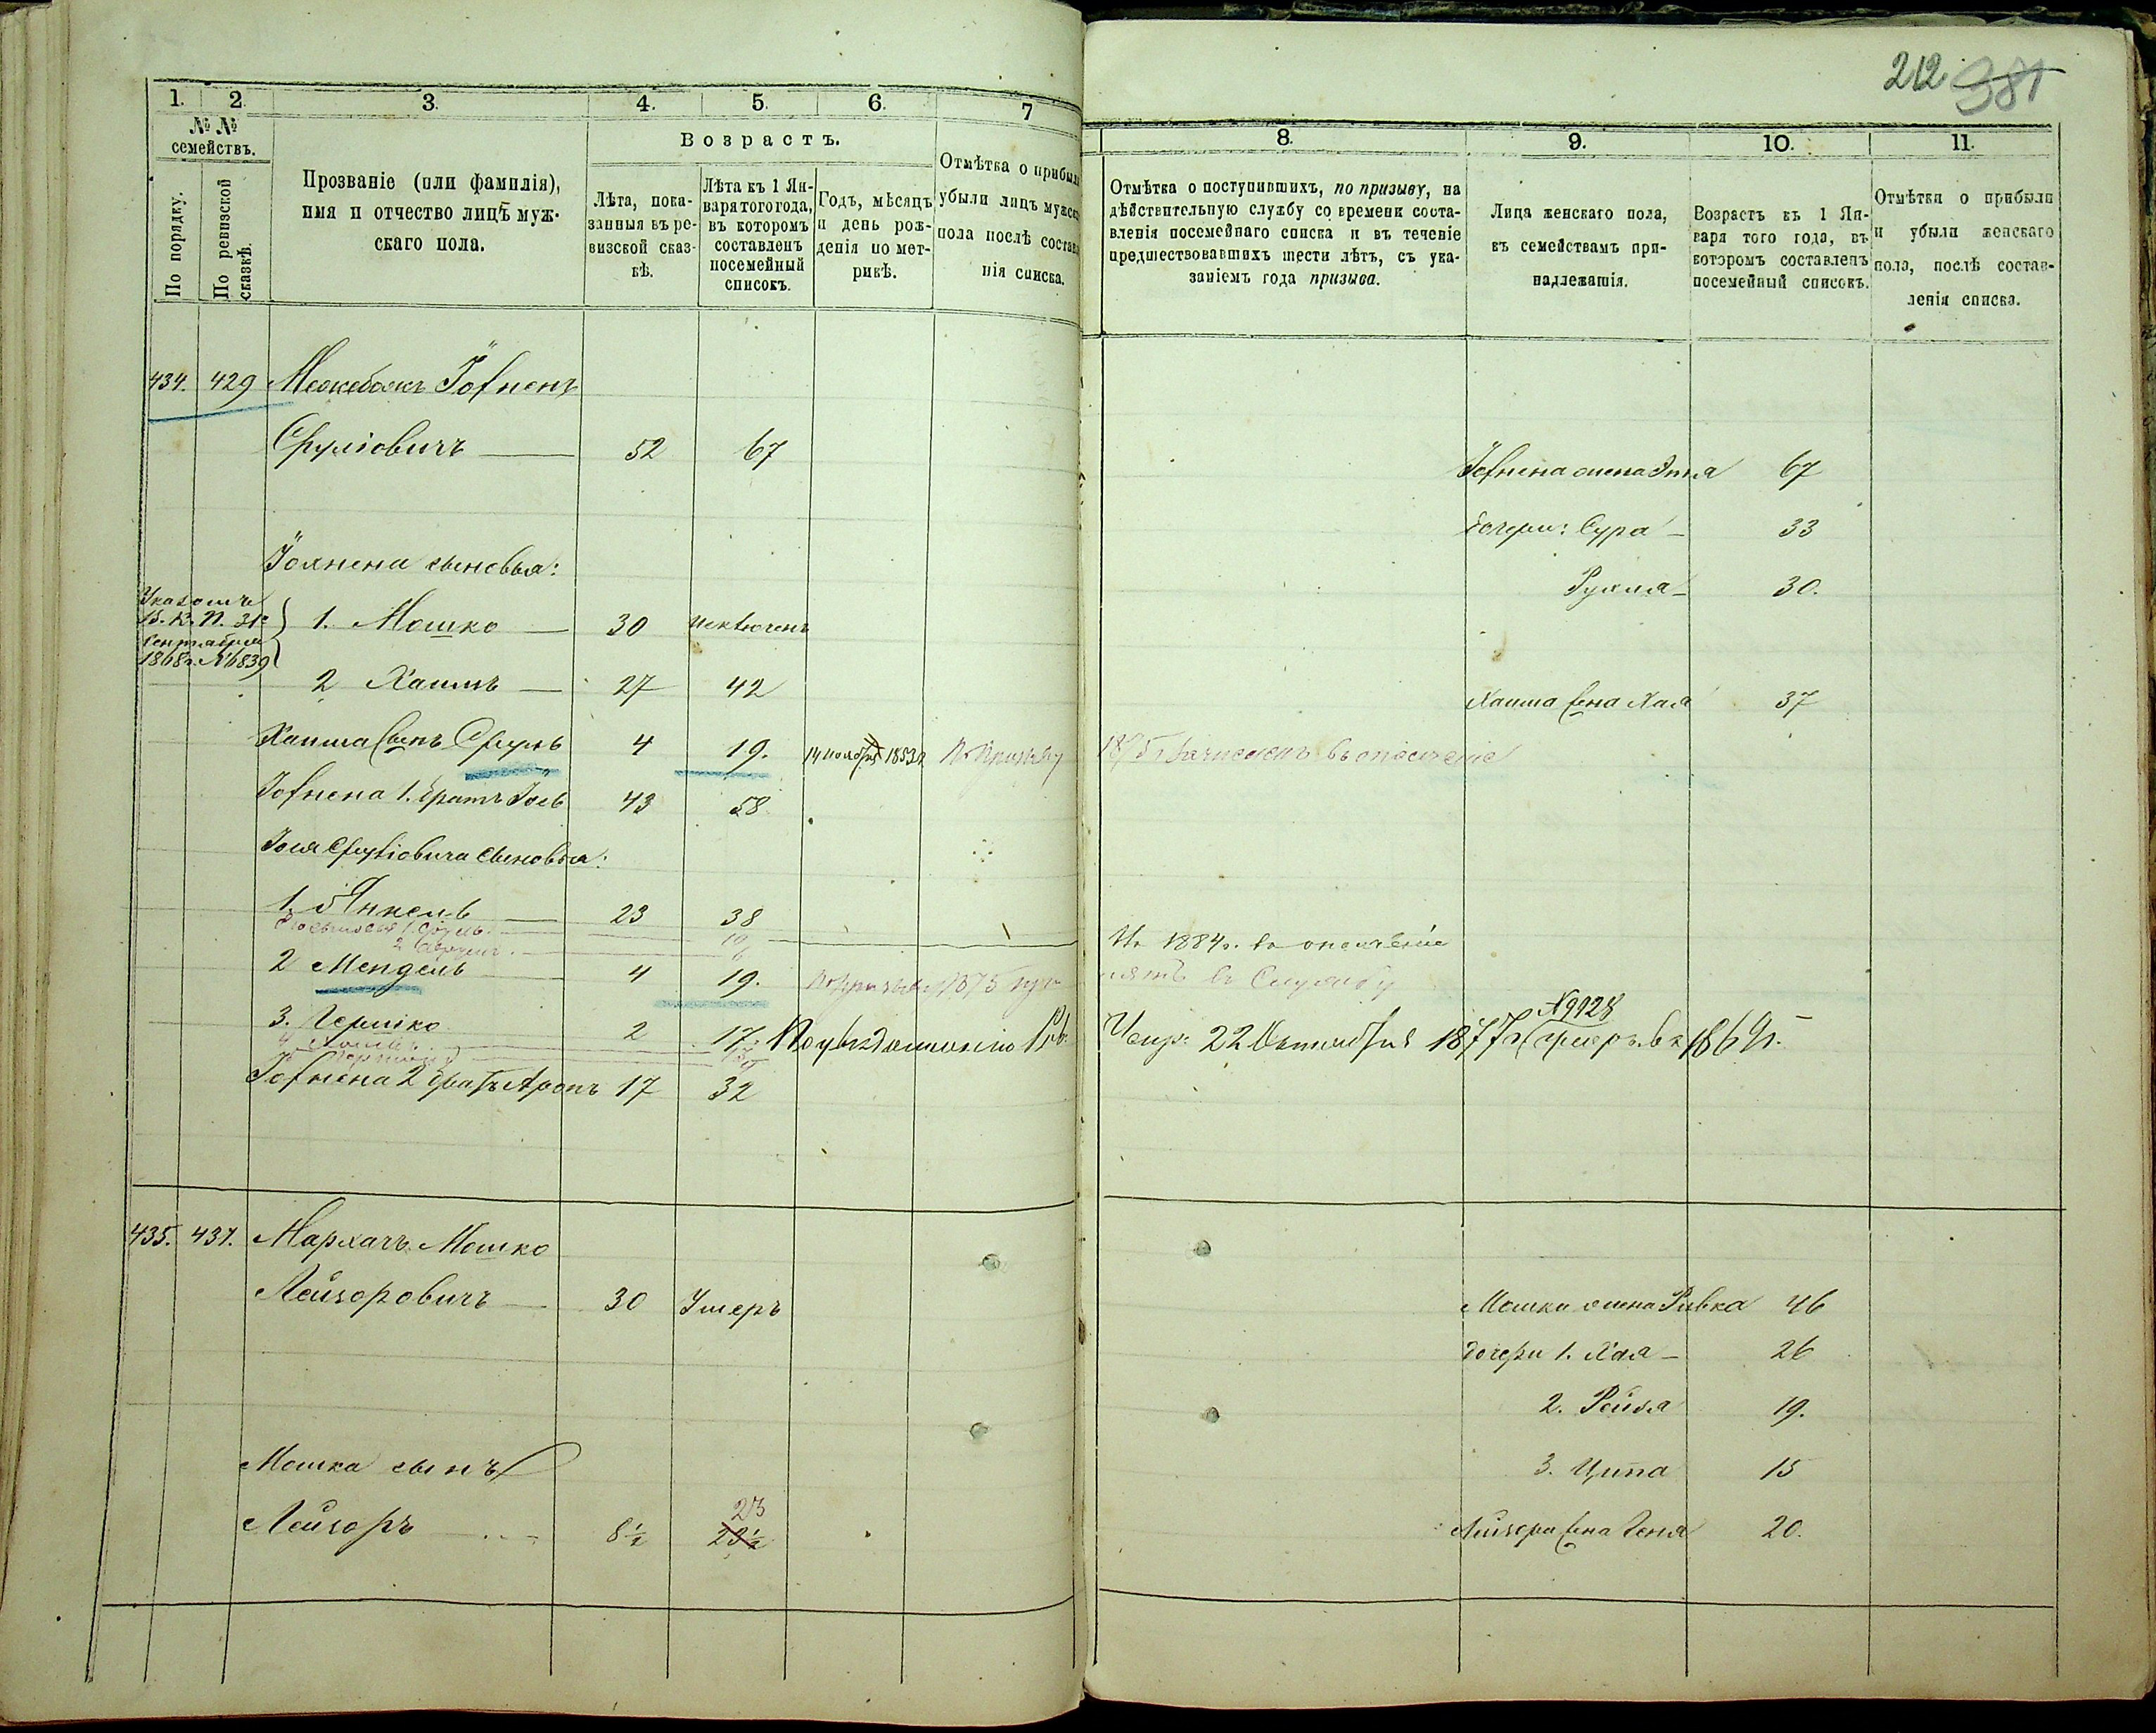 212 381
1. 2. 3. 4. 5. 6. 7
№ № семействъ.
По порядку.
По ревизской сказкѣ.
Прозваніе (или фамилія),
имя и отчество лицъ муж-
скаго пола.
Возрастъ.
Лѣта, пока-
занныя въ ре-
визской сказ-
кѣ.
Лѣта къ 1 Ян-
варя того года,
въ которомъ
составленъ
посемейный
списокъ.
Годъ, мѣсяцъ
и день рож-
денія по мет-
рикѣ.
Отмѣтка о прибыли
убыли лицъ мужск
пола послѣ состав
нія списка.
8. 9. 10. 11.
Отмѣтка о поступившихъ, по призыву, на
дѣйствительную службу со времени соста-
вленія посемейнаго списка и въ теченіе
предшествовавшихъ шести лѣтъ, съ ука-
заніемъ года призыва.
Лица женскаго пола,
къ семействамъ при-
надлежащія.
Возрастъ къ 1 Ян-
варя того года, въ
которомъ составленъ
посемейный списокъ.
Отмѣтки о прибыли
и убыли женскаго
пола, послѣ состав-
ленія списка.
434. 429 Межебожъ
Сруліовичъ 52 67
жена 67
дочери: Сура 33
сыновья:
Рухля 30.
Указомъ
Сентября
1868 г. № 6839
1. Мошко 30 исключенъ
2 Хаимъ 27 42
Хаима жена Хая 37
Хаима сынъ Сруль 4 19. 14 ноября 1853 г. По призыву 1875 г. зачисленъ въ ополченіе
1. братъ Іось 43 58
Іося Сруліовича сыновья:
1. Янкель 23 38
1. Сруль 10
2 6
Въ 1884 г. въ ополченіе
2 Мендель 4 19. По призыву 1875 года
въ службу
3. Гершко 2 17. По увѣдомленію
22 Октября 1877 г. № 9928 умеръ въ 1869 г.
4
2 братъ Аронъ 17 32
435. 431. Мархачъ Мошко
Лейзоровичъ 30 Умеръ
Мошки жена Ривка 46
дочери 1. Хая 26
2. Рейзя 19.
Мошка сынъ
3. Ципа 15
Лейзоръ 8½ 23 23½
Лейзора жена Геня 20.